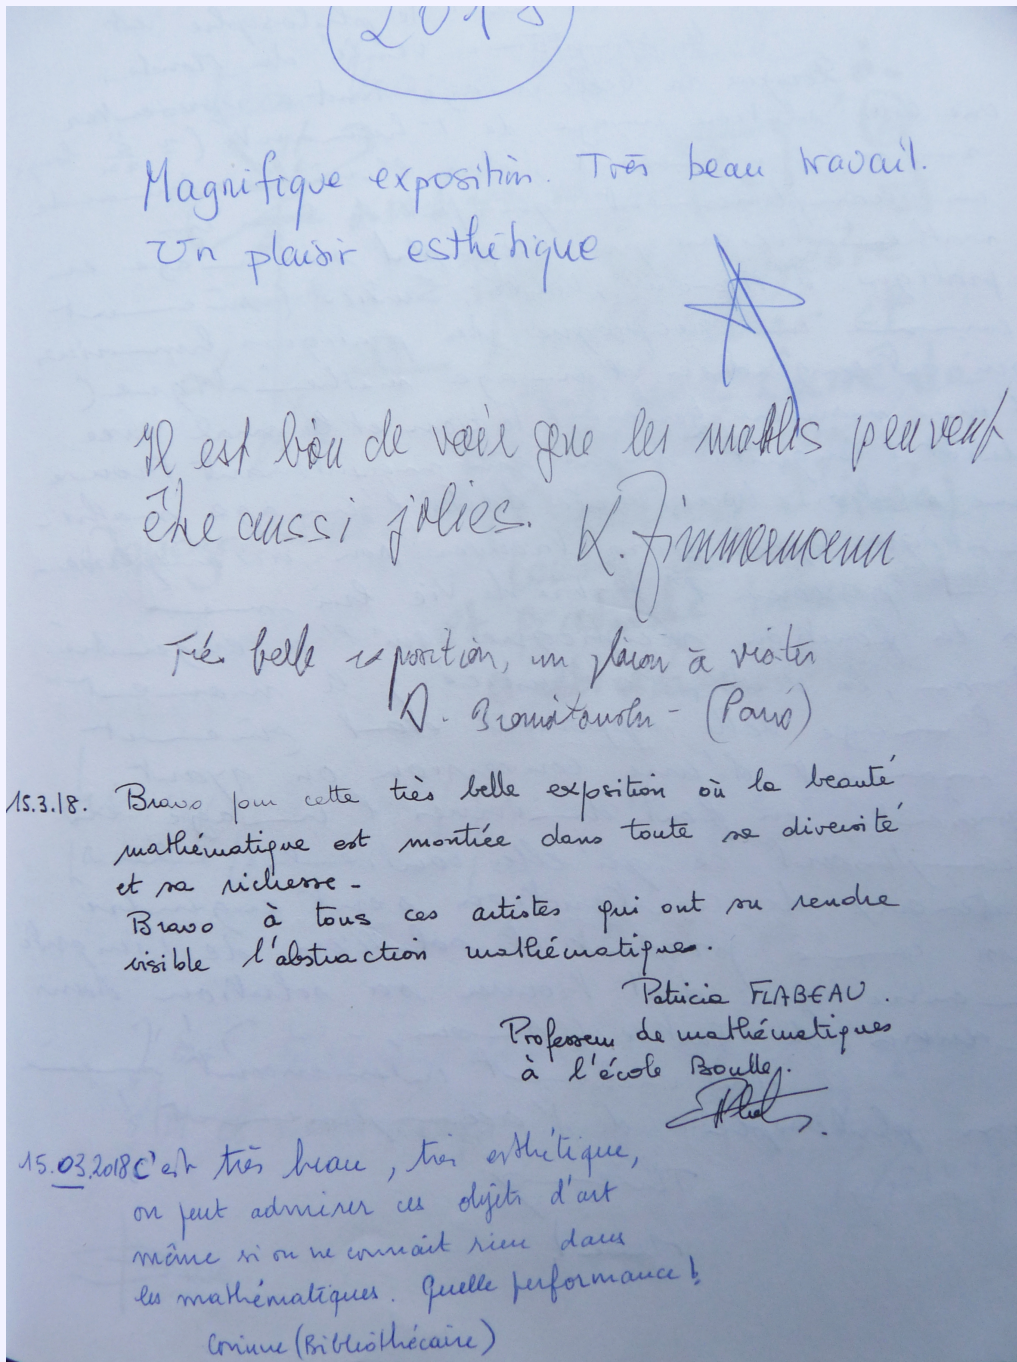 2018
Magnifique exposition. Très beau travail.
Un plaisir esthétique
Il est bon de voir que les maths peuvent
être aussi jolies. K. Zimmermann
Très belle exposition, un plaisir à visiter
D. (Paris)
15.3.18. Bravo pour cette très belle exposition où la beauté
mathématique est montrée dans toute sa diversité
et sa richesse -
Bravo à tous ces artistes qui ont su rendre
visible l'abstraction mathématique.
Patricia FLABEAU.
Professeur de mathématiques
à l'école Boulle.
15.03.2018 C'est très beau, très esthétique,
on peut admirer ces objets d'art
même si on ne connait rien dans
les mathématiques. Quelle performance!
Corinne (Bibliothécaire)